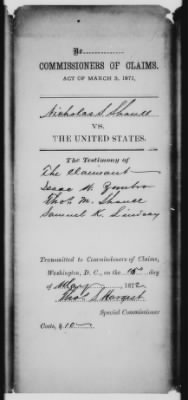 Re
COMMISSIONERS OF CLAIMS.
ACT OF MARCH 3, 1871,
Nicholas S. Shaull
VS.
THE UNITED STATES.
The Testimony of
The Claimant
Isaac H.
Thos M. Shaull
Samuel R. Lindsay
Transmitted to Commissioners of Claims,
Washington, D. C., on the 15th day
of May 1872
Thos
Special Commissioner
Costs, $10